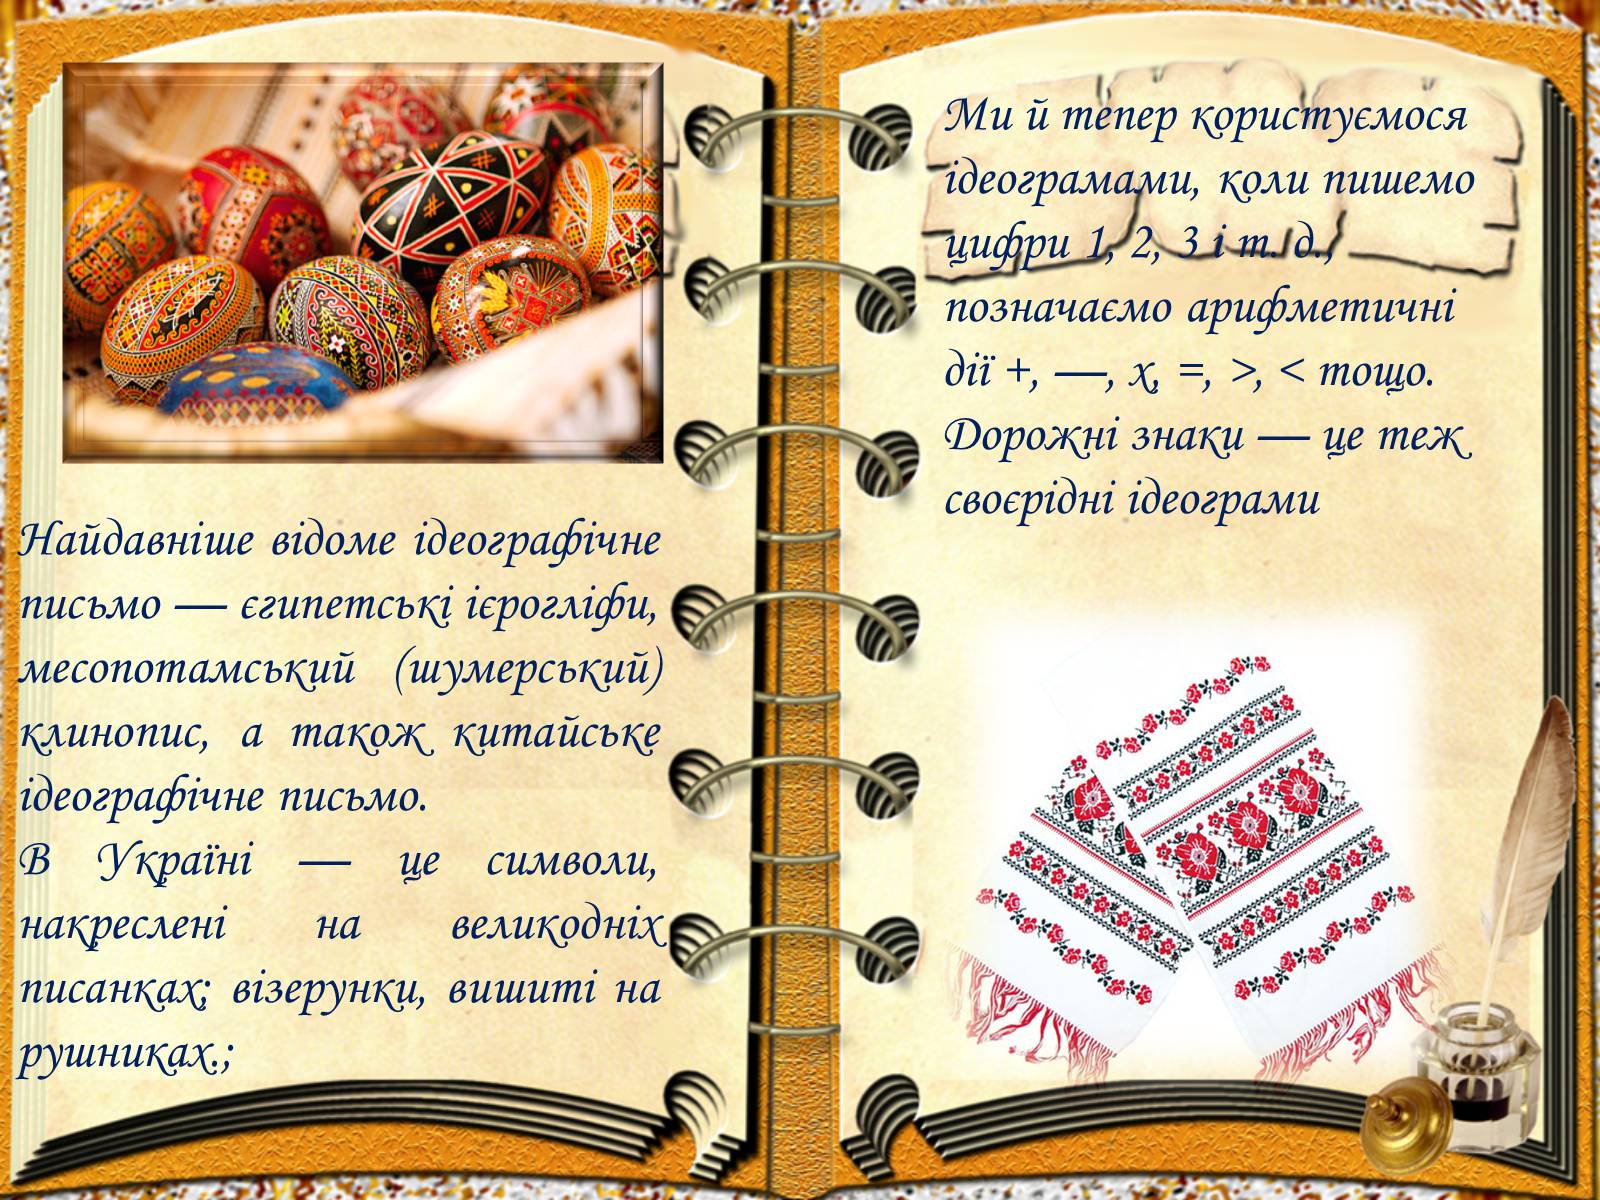 Найдавніше відоме ідеографічне
письмо — єгипетські ієрогліфи,
месопотамський (шумерський)
клинопис, а також китайське
ідеографічне письмо.
В Україні — це символи,
накреслені на великодніх
писанках; візерунки, вишиті на
рушниках.;
Ми й тепер користуємося
ідеограмами, коли пишемо
цифри 1, 2, 3 і т. д.,
позначаємо арифметичні
дії +, —, х, =, >, < тощо.
Дорожні знаки — це теж
своєрідні ідеограми